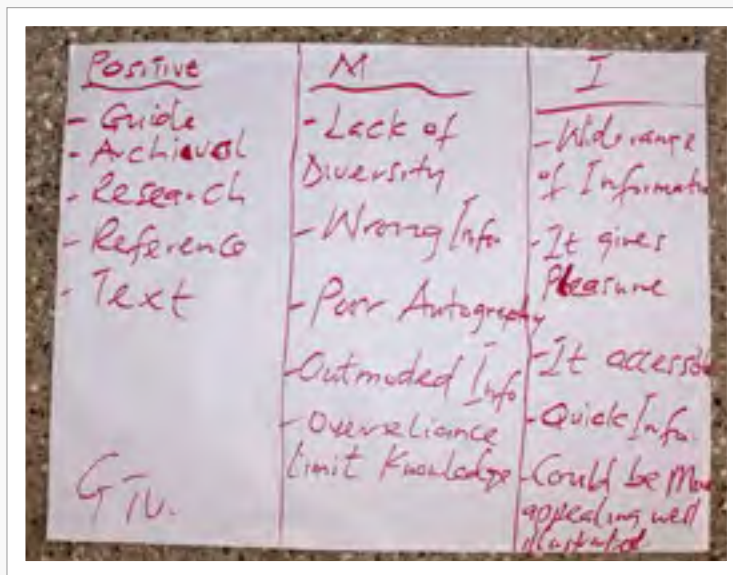 Positive
- Guide
- Archieval
- Research
- Reference
- Text
G IV.
M
- Lack of
Diversity
- Wrong Info
- Poor Autography
- Outmoded Info
- Overreliance
limit Knowledge
I
- Wide range
of Informatio
- It gives
Pleasure
- It accessib
- Quick Info.
- Could be More
appealing well
illustrated